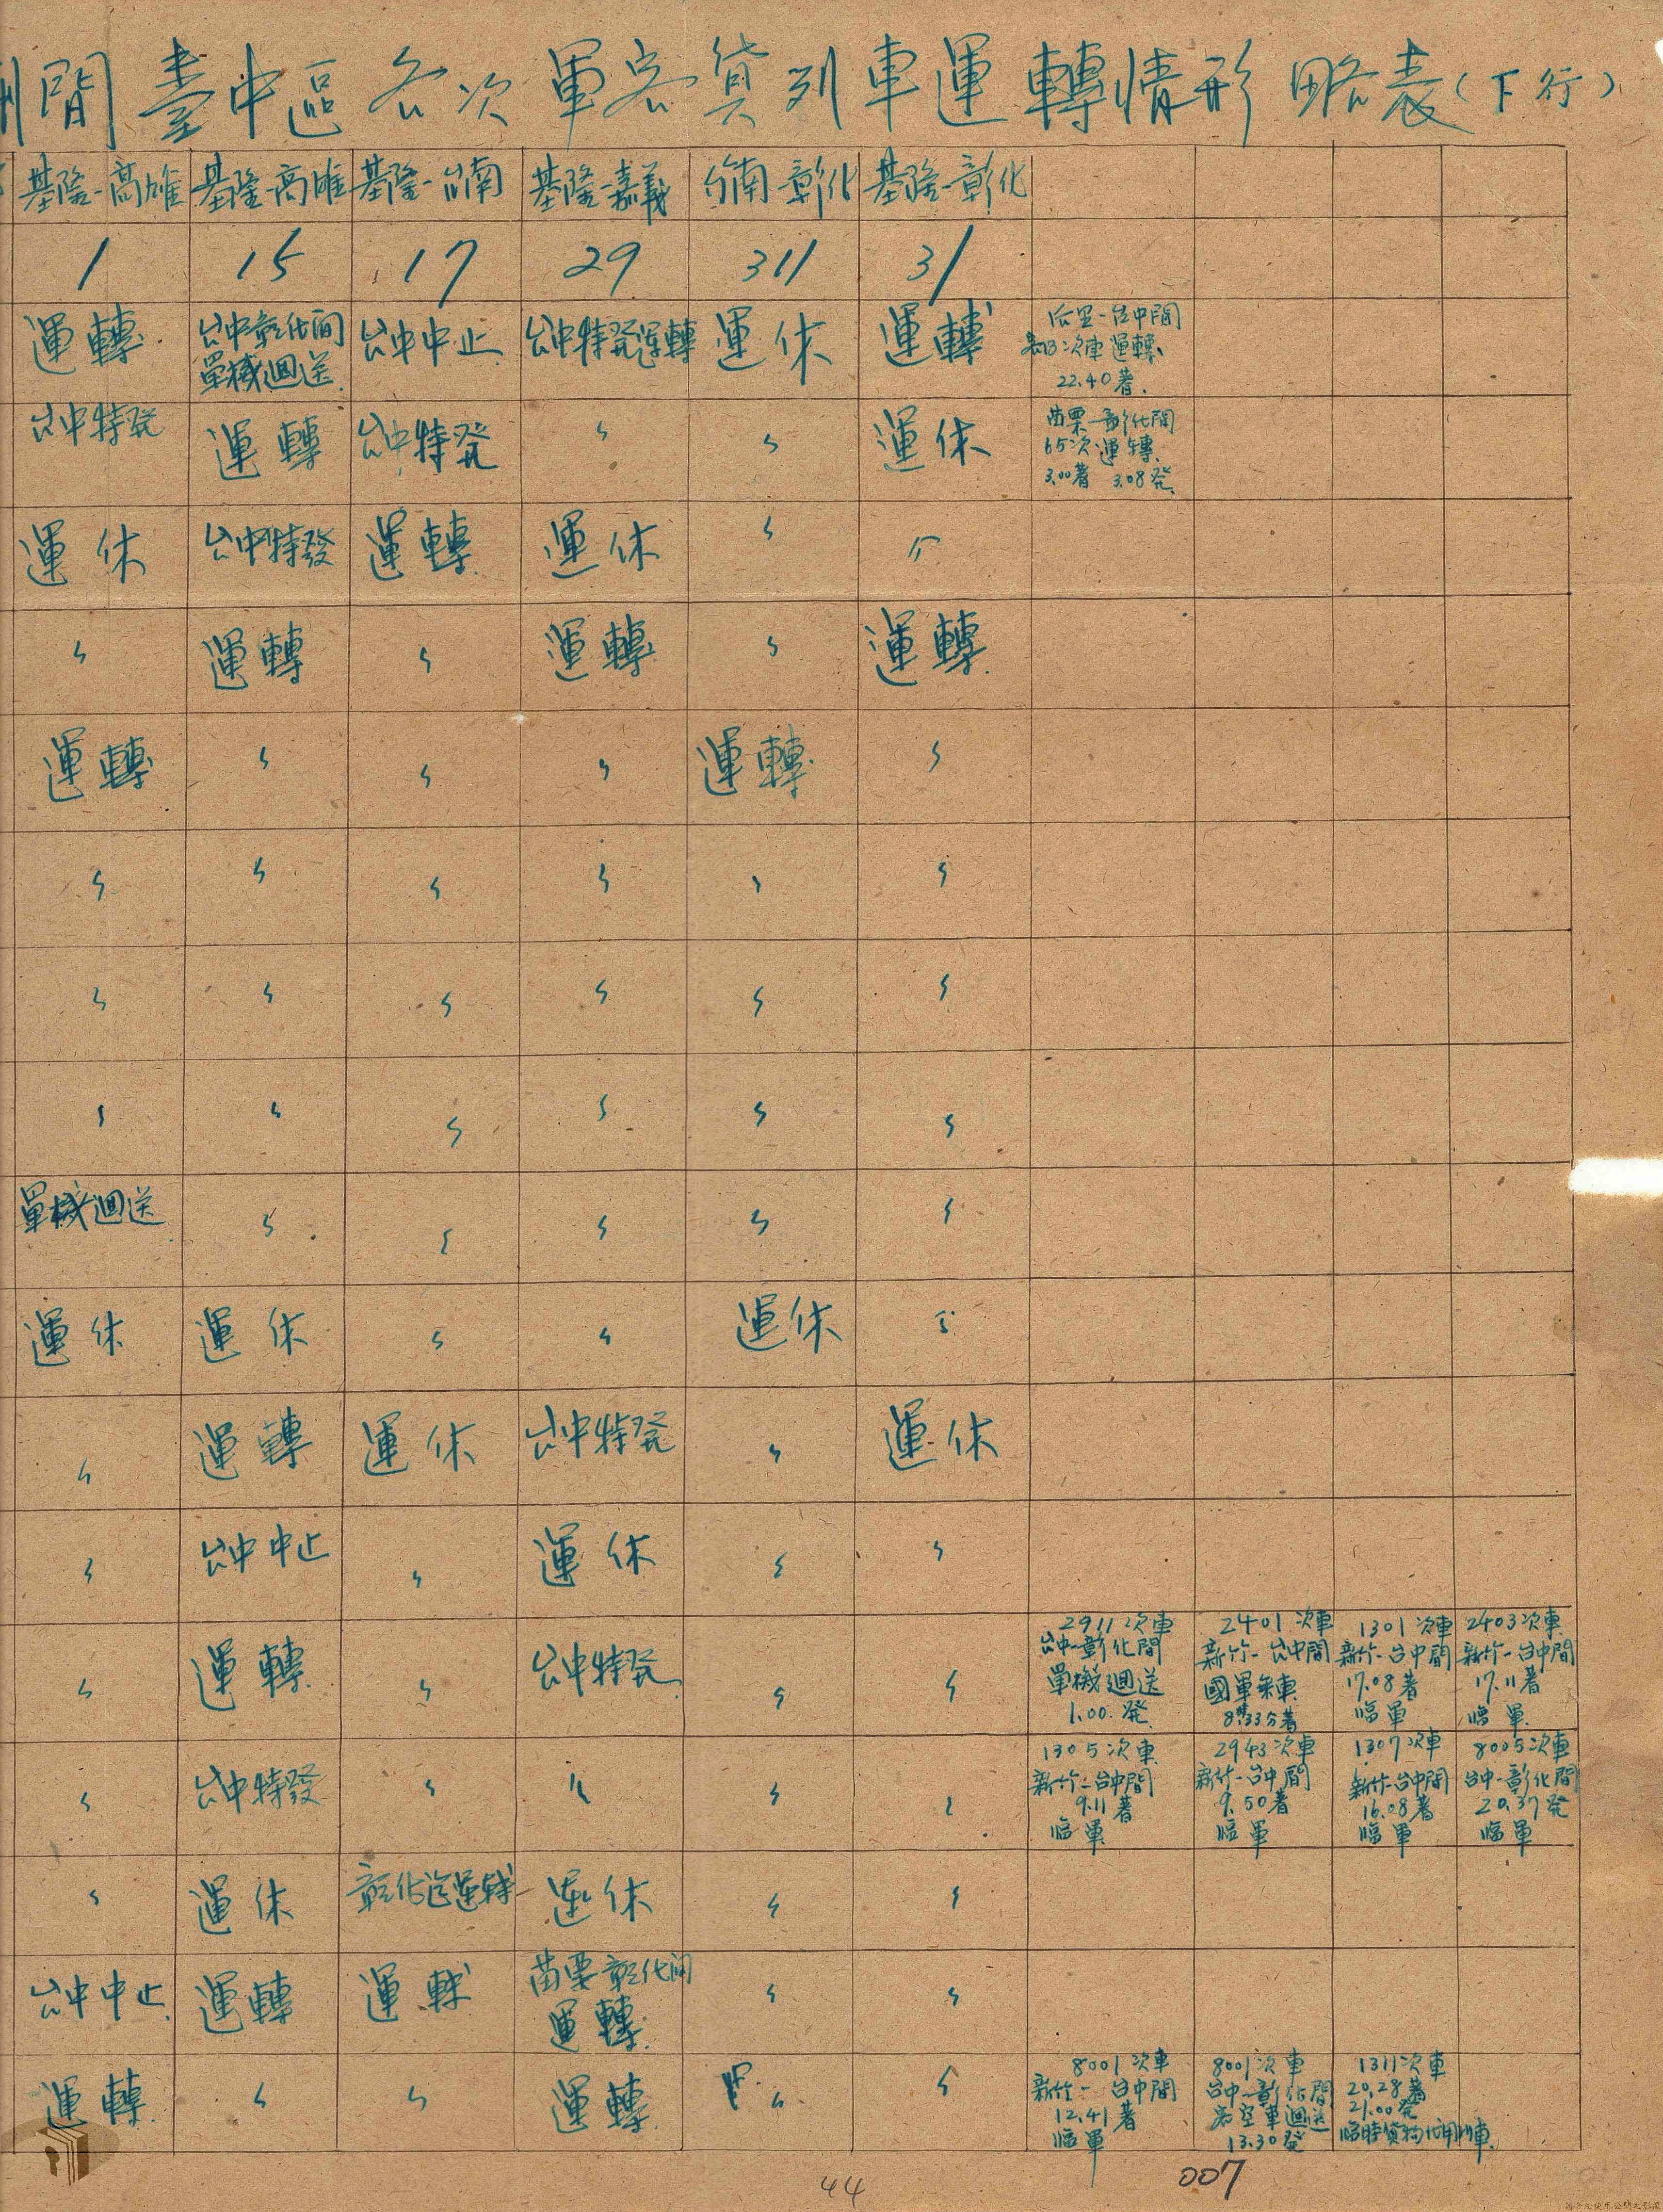 間臺中區各次軍客貨列車運轉情形略表(下行)
基隆-高雄 基隆-高雄 基隆-台南 基隆-嘉義 台南-彰化 基隆-彰化
1 15 17 29 311 31
運轉 台中彰化間 台中中止 台中特発運轉 運休 運轉 后里-台中間
單機迴送 次車運轉
22.40着.
台中特発 運轉 台中特発 〃 〃 運休 苗栗-彰化間
65次運轉
3.00着 3.08発
運休 台中特發 運轉 運休 〃 〃
〃 運轉 〃 運轉 〃 運轉
運轉 〃 〃 〃 運轉 〃
〃 〃 〃 〃 〃 〃
〃 〃 〃 〃 〃 〃
〃 〃 〃 〃 〃 〃
單機迴送 〃 〃 〃 〃 〃
運休 運休 〃 〃 運休 〃
〃 運轉 運休 台中特発 〃 運休
〃 台中中止 〃 運休 〃 〃
〃 運轉 〃 台中特発 〃 〃 2911次車 2401次車 1301次車 2403次車
台中-彰化間 新竹-台中間 新竹-台中間 新竹-台中間
單機迴送 國軍乘車 17.08着 17.11着
1.00発 8時33分着 臨軍 臨軍
〃 台中特發 〃 〃 〃 〃 1305次車 2943次車 1307次車 8005次車
新竹-台中間 新竹-台中間 新竹-台中間 台中-彰化間
9.11着 9.50着 16.08着 20.37発
臨軍 臨軍 臨軍 臨軍
〃 運休 彰化迄運轉 運休 〃 〃
台中中止 運轉 運轉 苗栗彰化間 〃 〃
運轉
運轉 〃 〃 運轉 〃 〃 8001次車 8001次車 1311次車
新竹-台中間 台中-彰化間 20.28着
12.41着 空車迴送 21.00発
臨軍 13.30発 臨時貨物代用列車
44 007